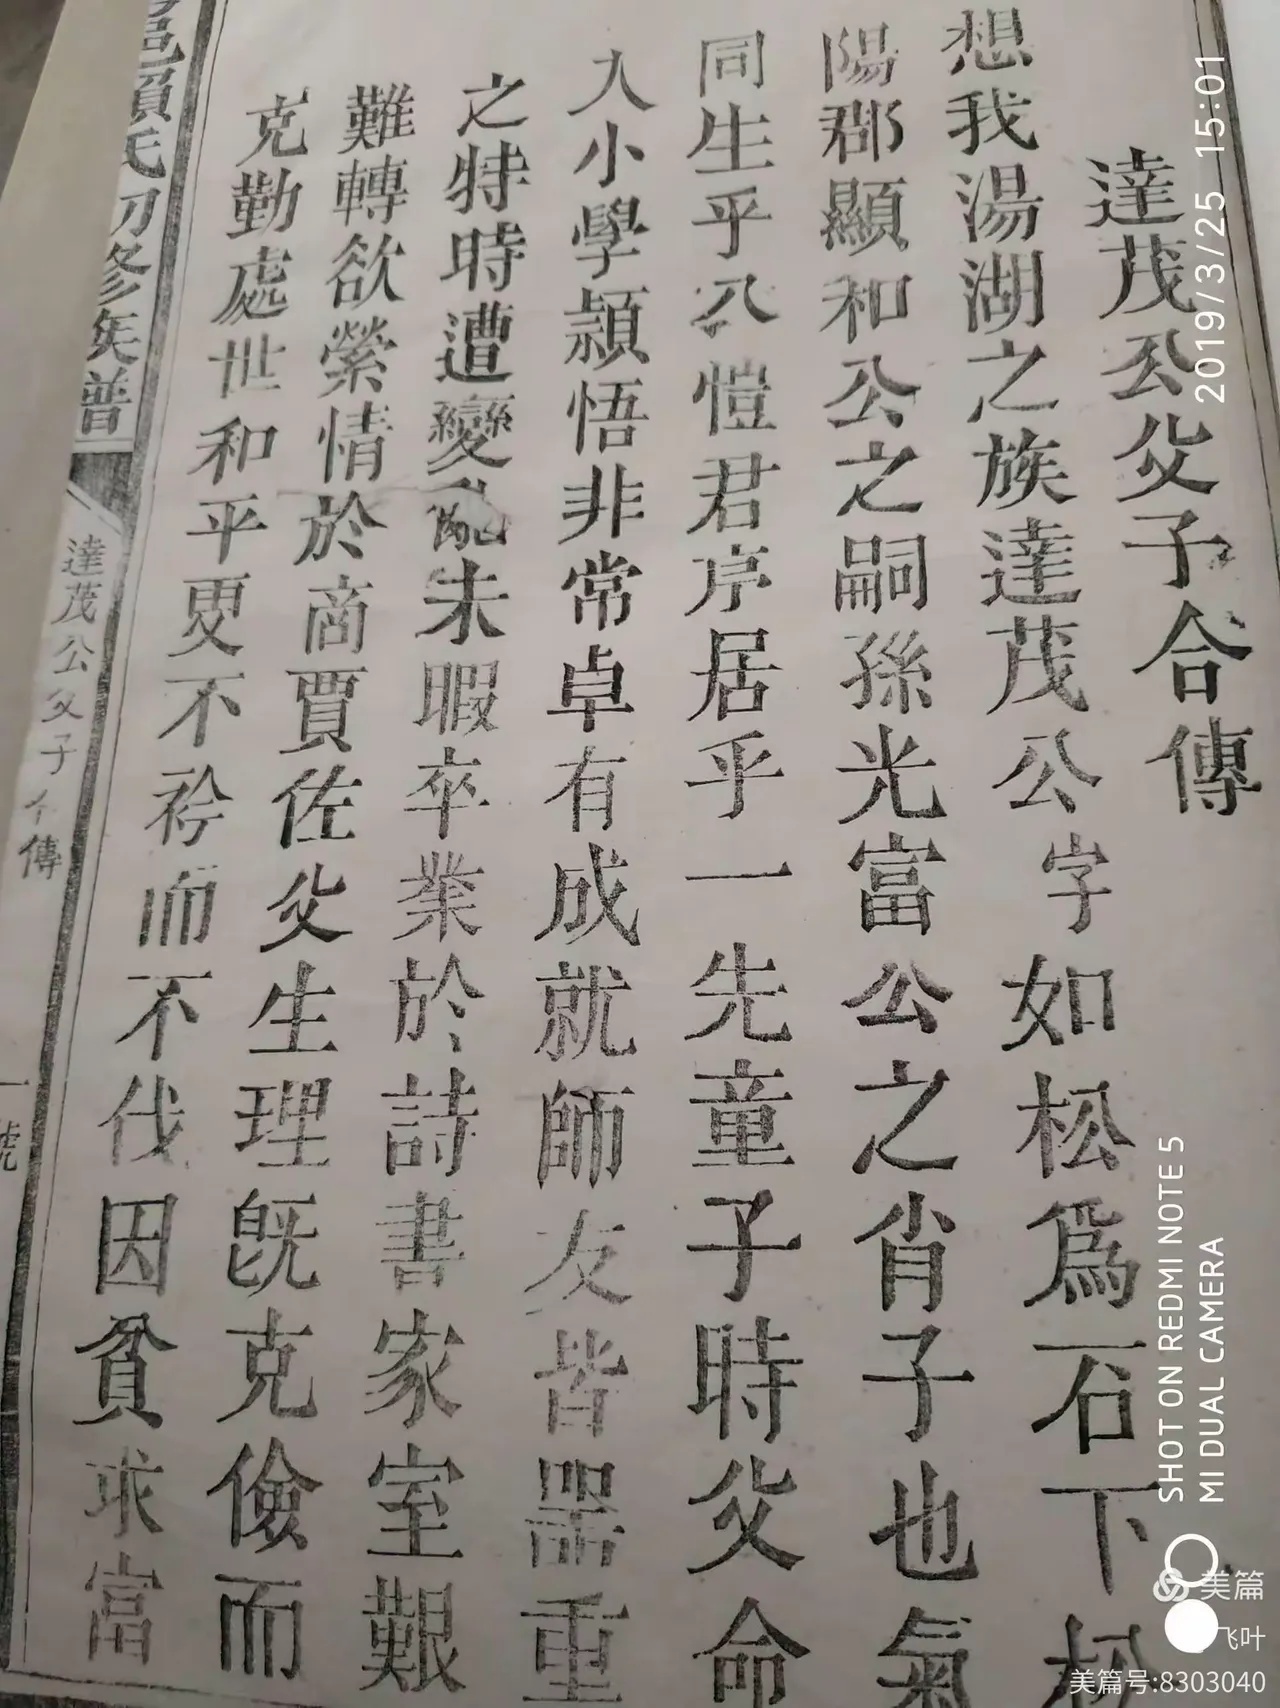 達茂公父子合傳
想我湯湖之族達茂公字如松為石下松
陽郡顯和公之嗣孫光富公之肖子也氣
同生乎八愷君序居乎一先童子時父命
入小學穎悟非常卓有成就師友皆器重
之特時遭變亂未暇卒業於詩書家室艱
難轉欲縈情於商賈佐父生理既克儉而
克勤處世和平更不矜而不伐因貧求富
邑賴氏初修族譜
達茂公父子合傳
一號
2019/3/25 15:01
SHOT ON REDMI NOTE 5
MI DUAL CAMERA
美篇
飞叶
美篇号:8303040